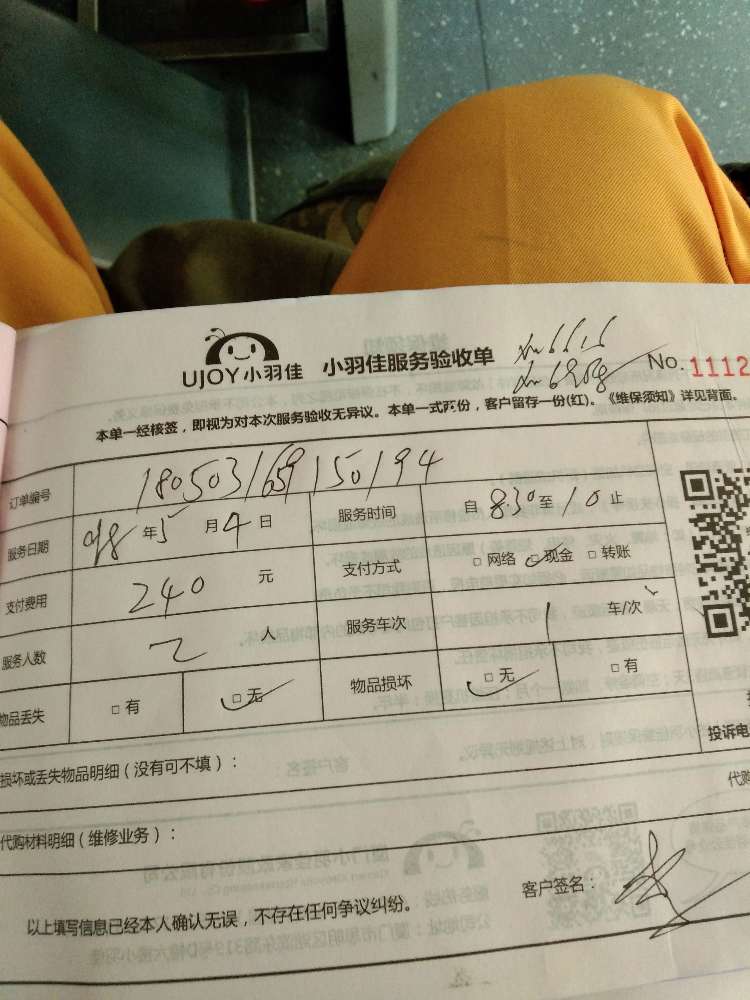 UJOY小羽佳 小羽佳服务验收单 No. 1112
本单一经核签，即视为对本次服务验收无异议。本单一式两份，客户留存一份(红)。《维保须知》详见背面。
订单编号 180503169150194
服务日期 年5月4日 服务时间 自8:30至10止
支付费用 240元 支付方式 □网络 □现金 □转账
服务人数 2人 服务车次 1车/次
物品丢失 □有 □无 物品损坏 □无 □有
投诉电
损坏或丢失物品明细（没有可不填）：
代购
代购材料明细（维修业务）：
客户签名：
以上填写信息已经本人确认无误，不存在任何争议纠纷。